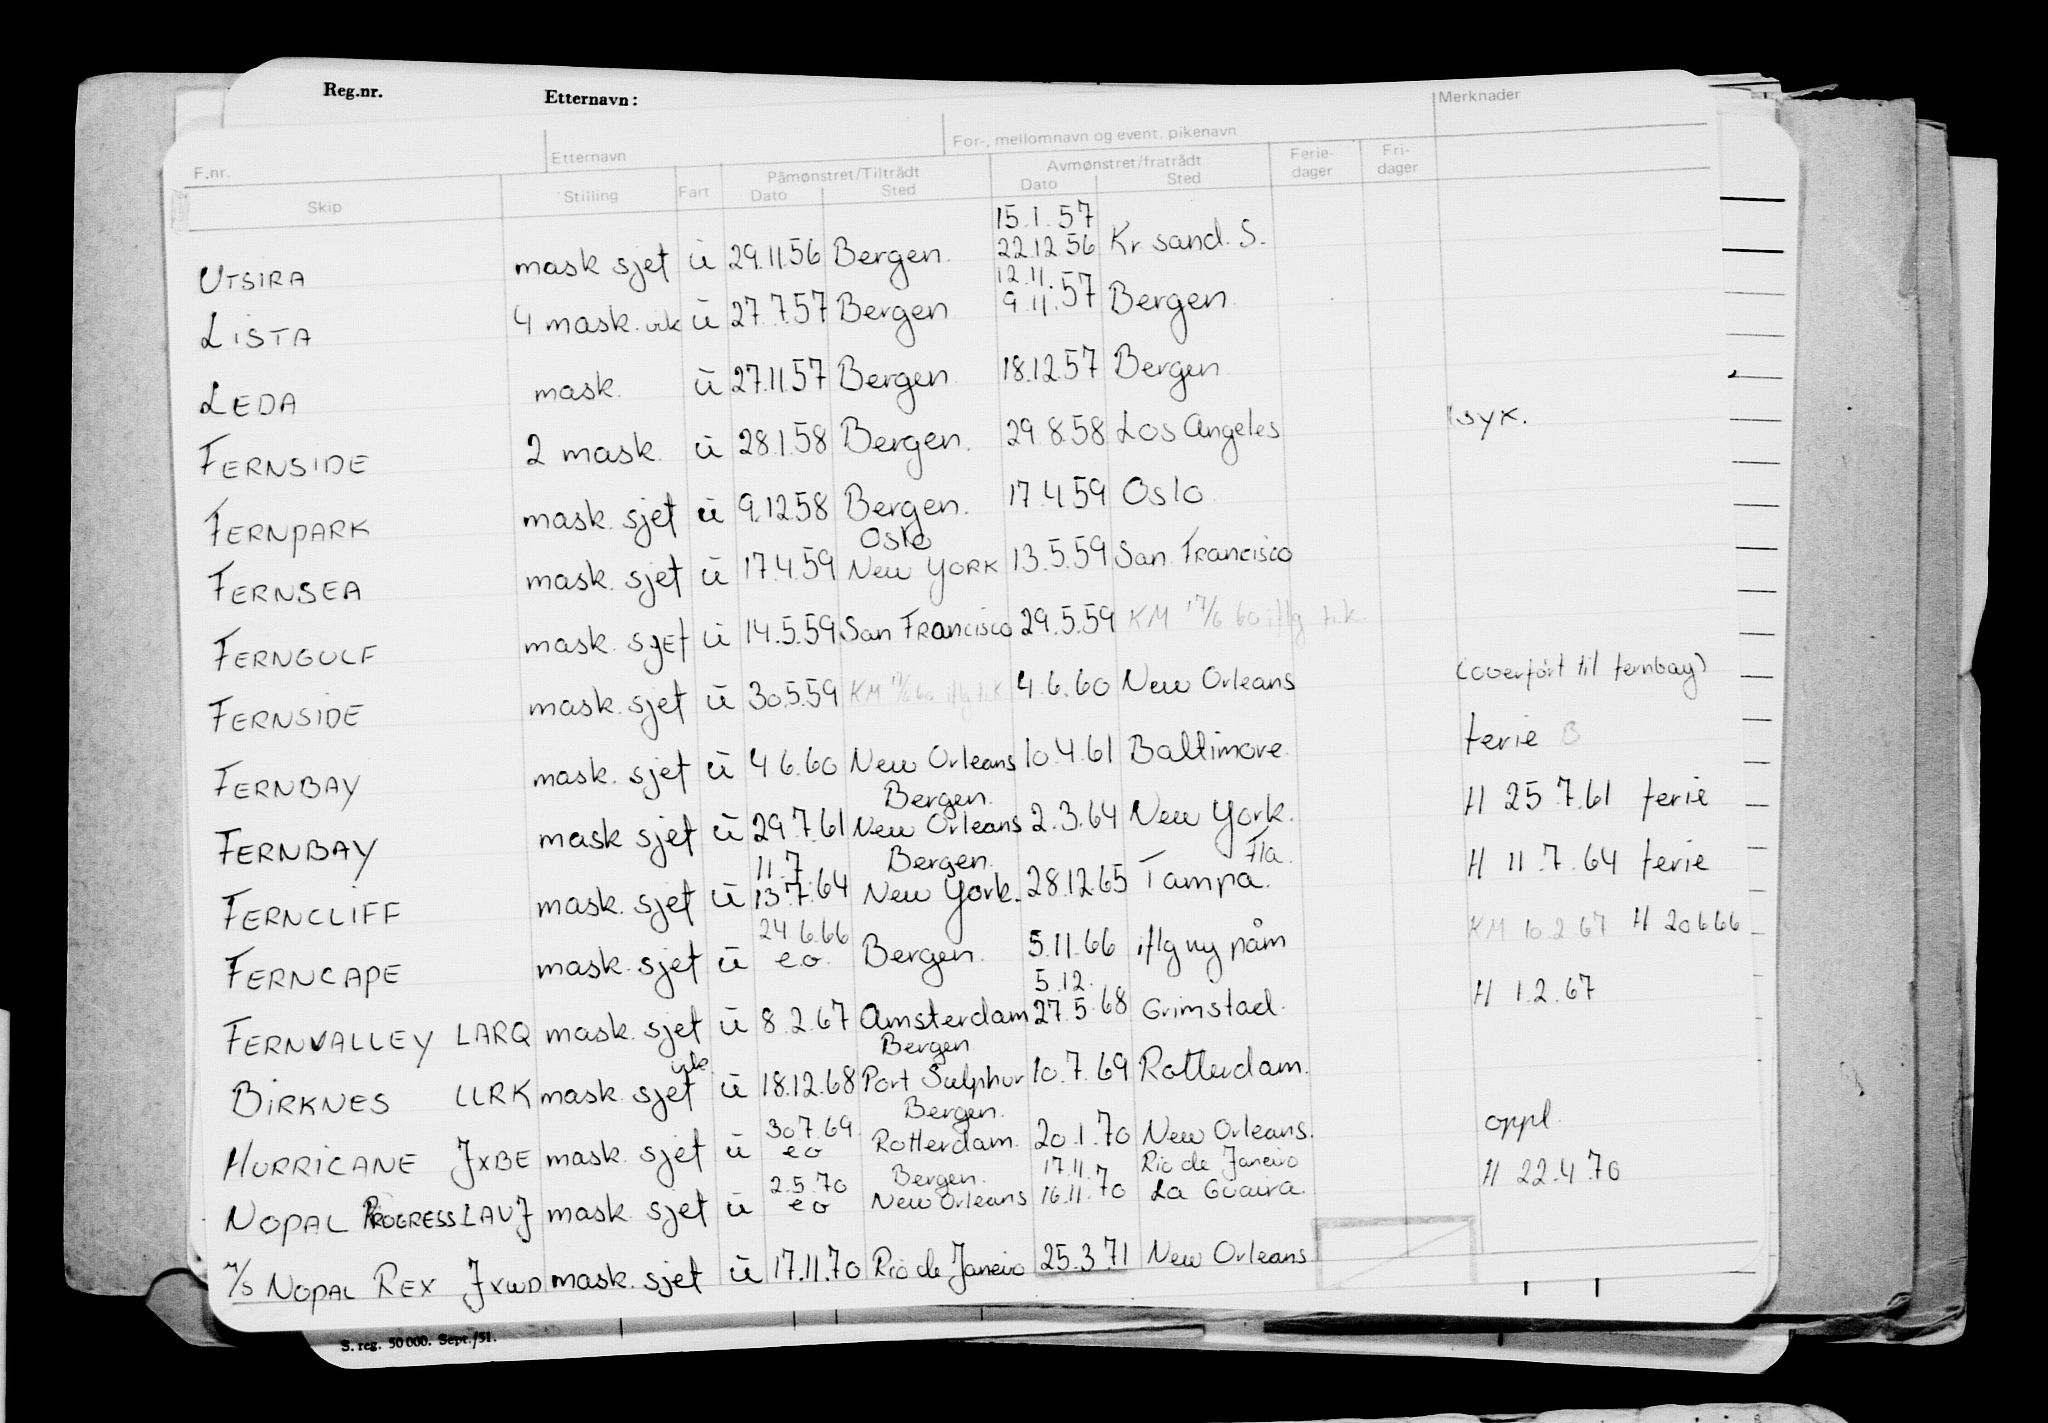 Reg.nr. Etternavn:
Merknader
F.nr. Etternavn For-, mellomnavn og event. pikenavn
Skip Stilling Fart Påmønstret/Tiltrådt Dato Sted Avmønstret/fratrådt Dato Sted Ferie-dager Fri-dager
15.1.57
UTSIRA mask sjef u 29.11.56 Bergen. 22.12.56 Kr.sand. S.
12.11.
LISTA 4 mask. vik u 27.7.57 Bergen 9.11.57 Bergen.
LEDA mask. u 27.11.57 Bergen 18.12.57 Bergen
FERNSIDE 2 mask. u 28.1.58 Bergen. 29.8.58 Los Angeles syk.
FERNPARK mask. sjef u 9.12.58 Bergen. 17.4.59 Oslo.
Oslo
FERNSEA mask. sjef u 17.4.59 New York 13.5.59 San. Francisco
FERNGULF mask. sjef u 14.5.59 San Francisco 29.5.59 KM 17/6 60 iflg t.k.
FERNSIDE mask. sjef u 30.5.59 KM 17/6 60 iflg t.k. 4.6.60 New Orleans (overført til fernbay)
FERNBAY mask. sjef u 4.6.60 New Orleans 10.4.61 Baltimore. ferie B
Bergen.
FERNBAY mask sjef u 29.7.61 New Orleans 2.3.64 New York. H 25.7.61 ferie
11.7. Bergen. Fla.
FERNCLIFF mask. sjef u 13.7.64 New York. 28.12.65 Tampa. H 11.7.64 ferie
24.6.66
FERNCAPE mask. sjef u e.o. Bergen. 5.11.66 iflg ny påm KM 10.2.67 H 20.6.66
5.12.
FERNVALLEY LARQ mask. sjef u 8.2.67 Amsterdam 27.5.68 Grimstad. H 1.2.67
vik. Bergen
BIRKNES LLRK mask. sjef u 18.12.68 Port Sulphur 10.7.69 Rotterdam.
30.7.69 Bergen.
HURRICANE JXBE mask. sjef u eo Rotterdam. 20.1.70 New Orleans. oppl.
2.5.70 Bergen. 17.11. Rio de Janeiro
NOPAL PROGRESS LAVJ mask. sjef u eo New Orleans 16.11.70 La Guaira. H 22.4.70
M/S NOPAL REX JXWD mask. sjef u 17.11.70 Rio de Janeiro 25.3.71 New Orleans
S. reg. 50 000. Sept./51.